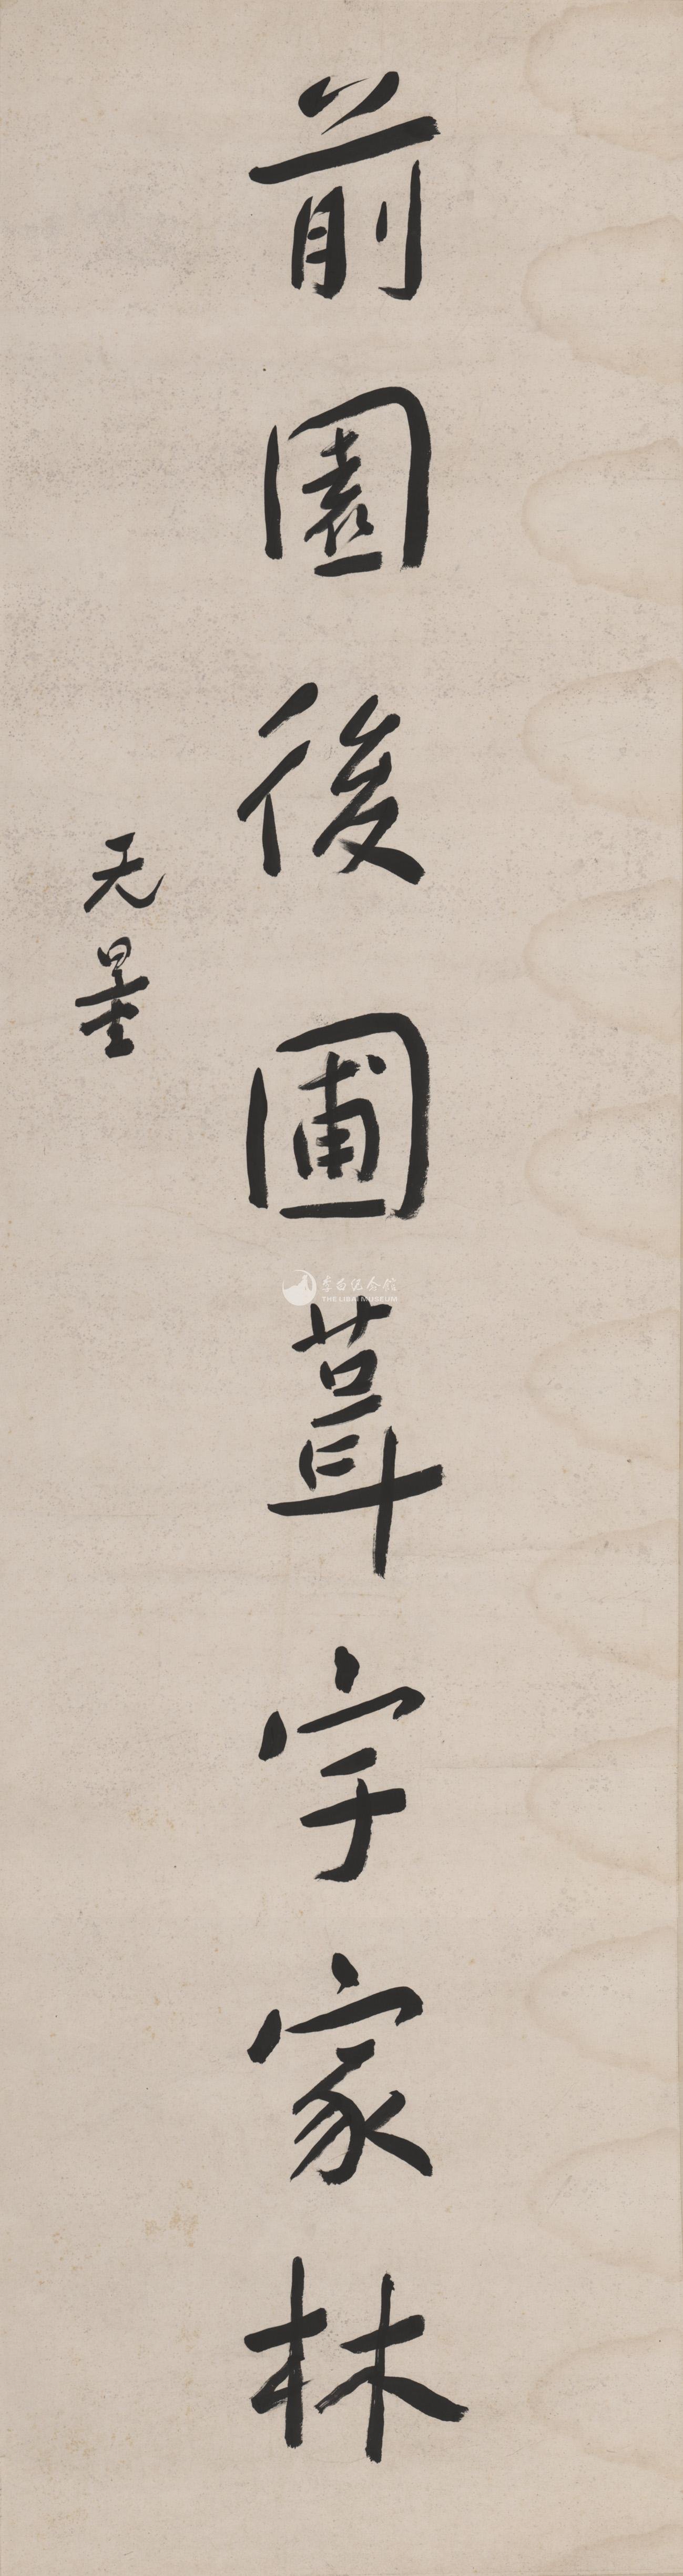 前園後圃葺宇家林
无量
李白纪念馆
THE LIBAI MUSEUM